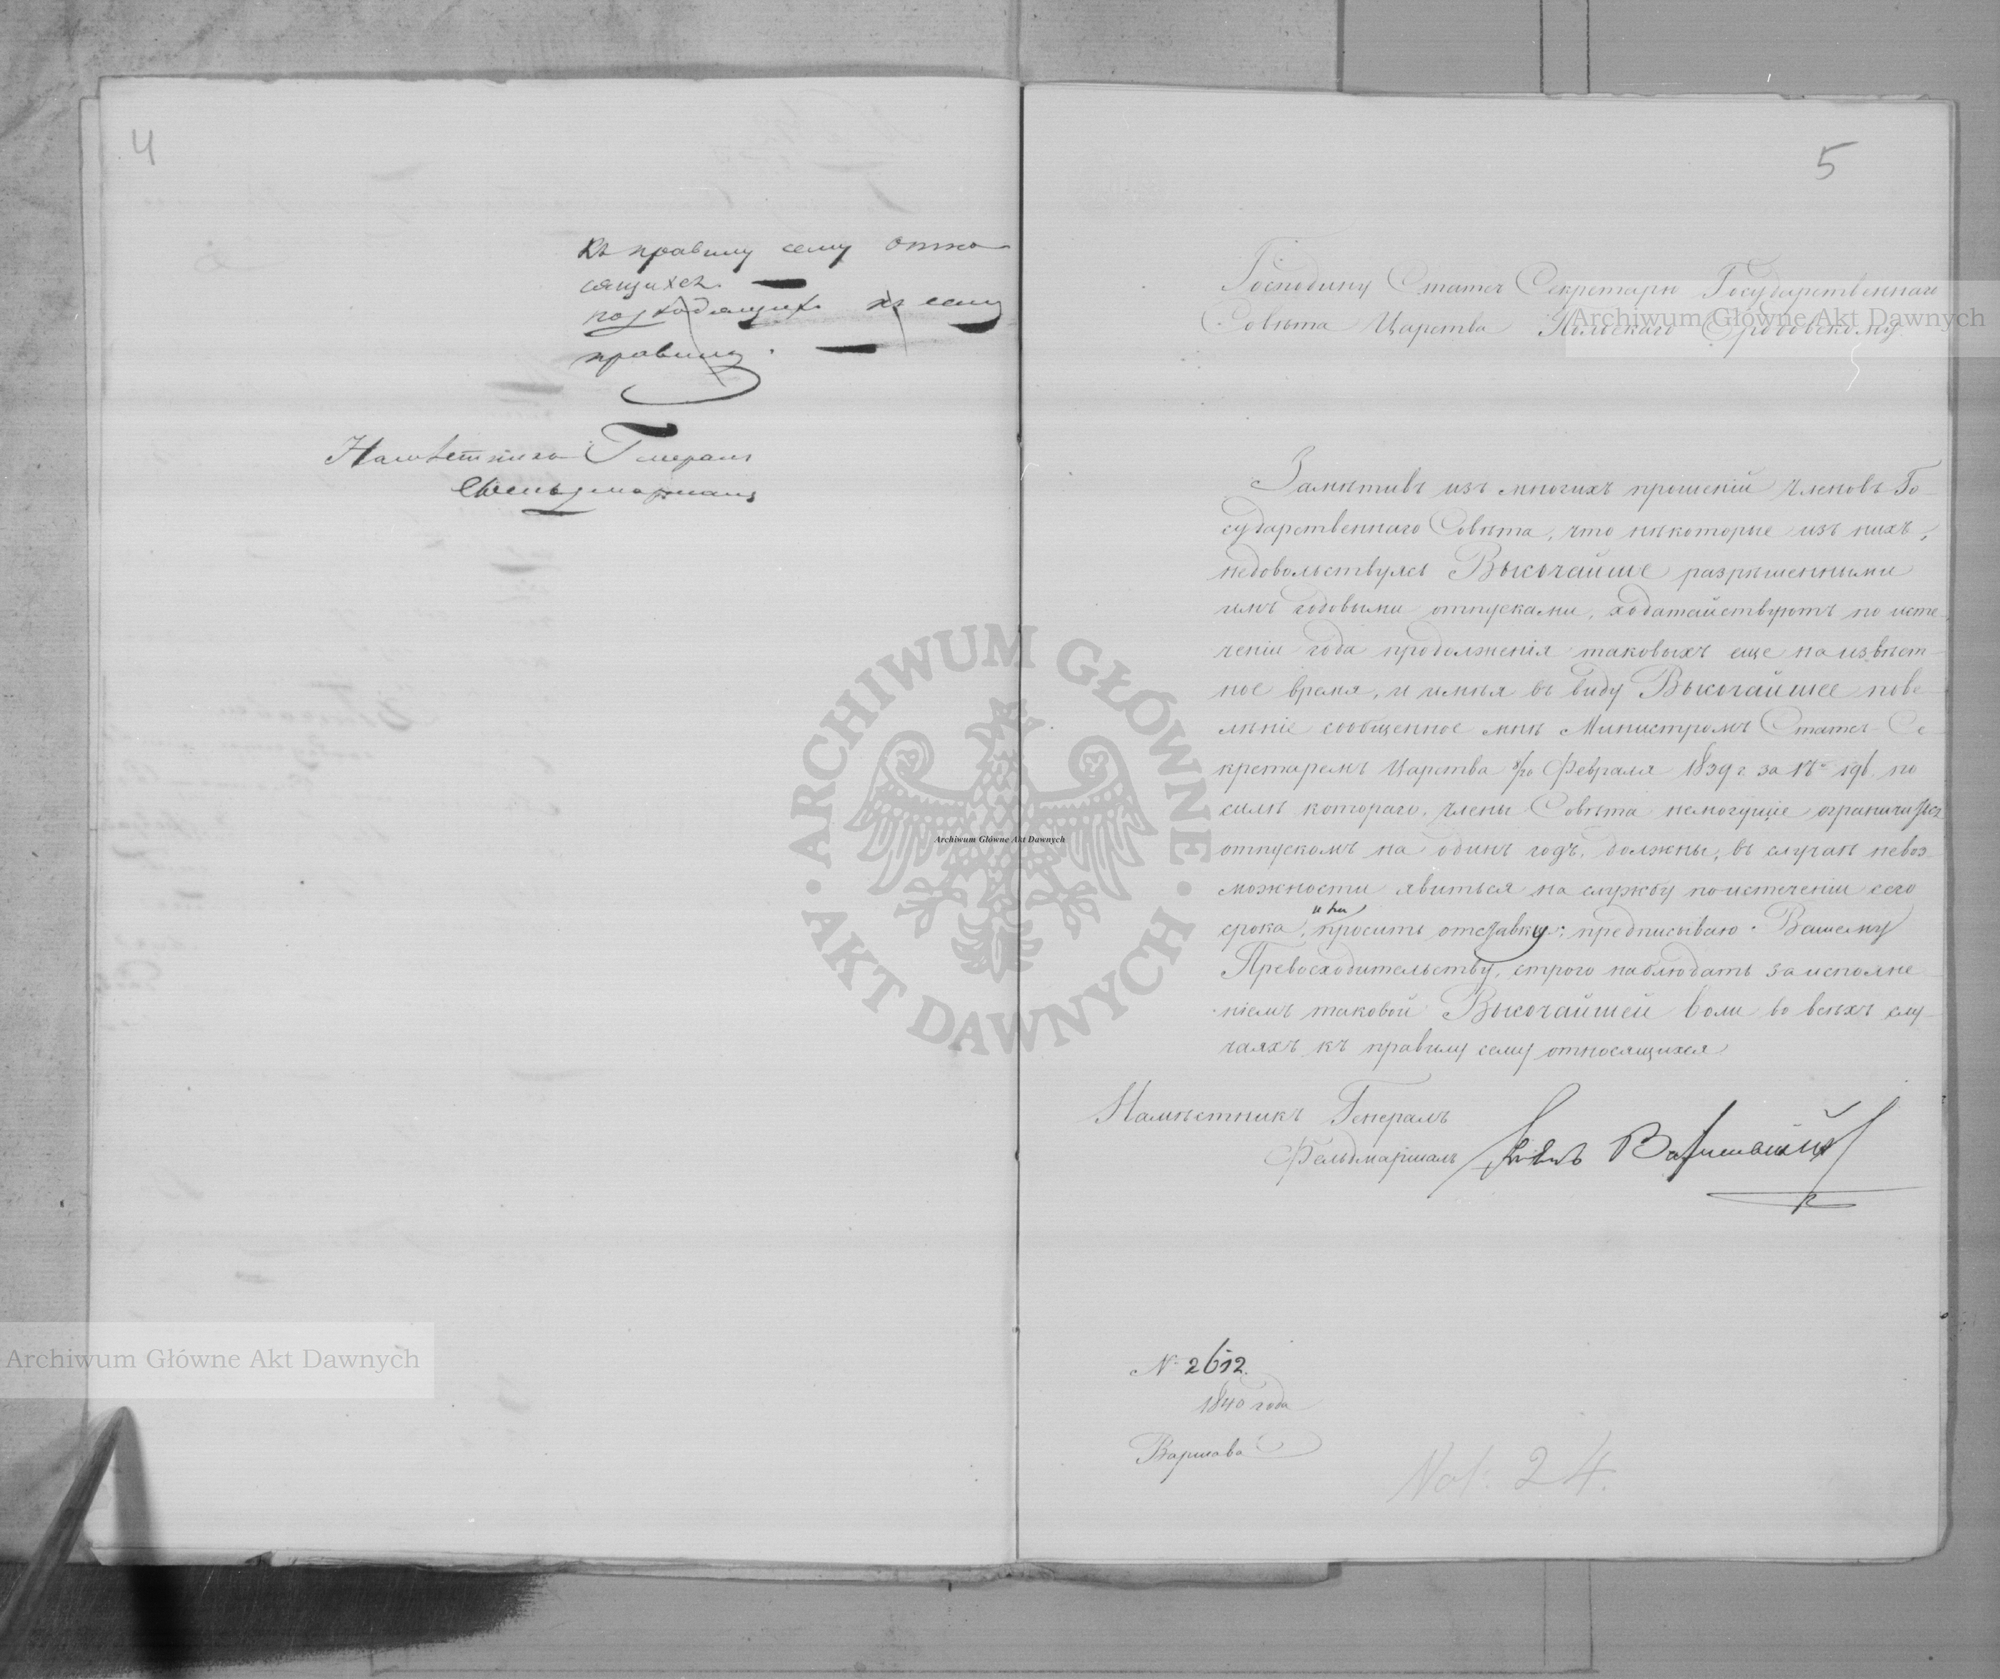 4
къ правилу сему отно
сящихся.
подходящихъ къ сему
правилу.
Намѣстникъ Генералъ
Фельдмаршалъ
5
Господину Статсъ Секретарю Государственнаго
Совѣта Царства Польскаго
Замѣтивъ изъ многихъ прошеній Членовъ Го-
сударственнаго Совѣта, что нѣкоторые изъ нихъ,
недовольствуясь Высочайше разрѣшенными
имъ годовыми отпусками, ходатайствуютъ по исте-
ченіи года продолженія таковыхъ еще на извѣст-
ное время, и имѣя въ виду Высочайшее пове-
лѣніе сообщенное мнѣ Министромъ Статсъ Се-
кретаремъ Царства 8/20 Февраля 1839 г. за № 196. по
силѣ котораго, Члены Совѣта немогущіе ограничиться
отпускомъ на одинъ годъ, должны, въ случаѣ невоз-
можности явиться на службу по истеченіи сего
срока, просить отставку; предписываю Вашему
Превосходительству, строго наблюдать за исполне-
ніемъ таковой Высочайшей воли во всѣхъ слу-
чаяхъ къ правилу сему относящихся
Намѣстникъ Генералъ
Фельдмаршалъ Князь Варшавскій
№ 2612.
1840 года
Варшава
24.
ARCHIWUM GŁÓWNE
AKT DAWNYCH
Archiwum Główne Akt Dawnych
Archiwum Główne Akt Dawnych
Archiwum Główne Akt Dawnych